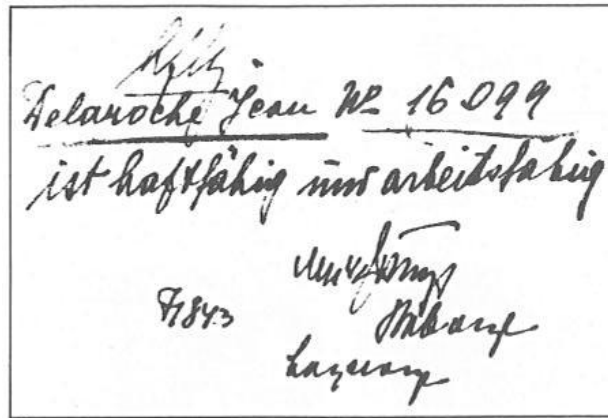 Delaroche Jean No 16099
ist haftfähig und arbeitsfähig
7/8 43
Stabarzt
Lagerarzt